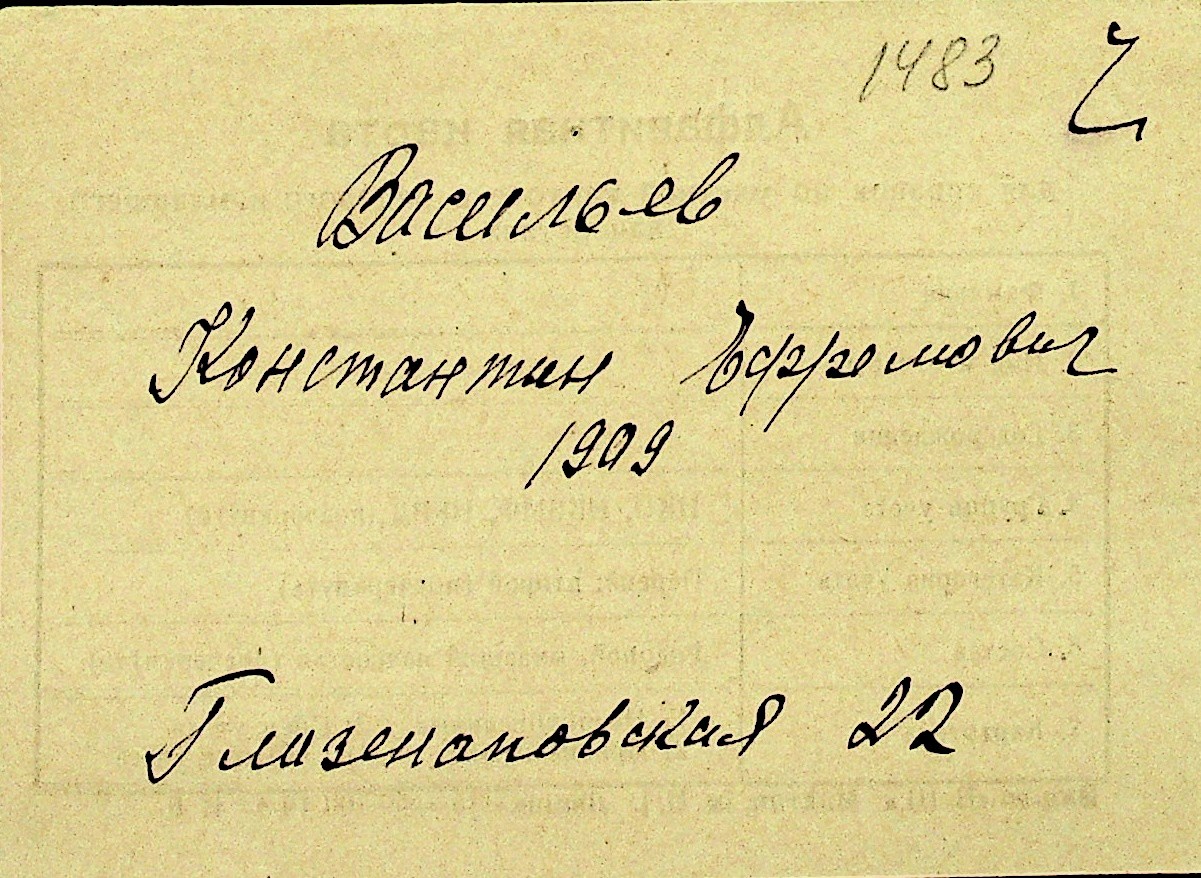 1483 Ч
Васильев
Константин Ефремович
1909
Глазенаповская 22